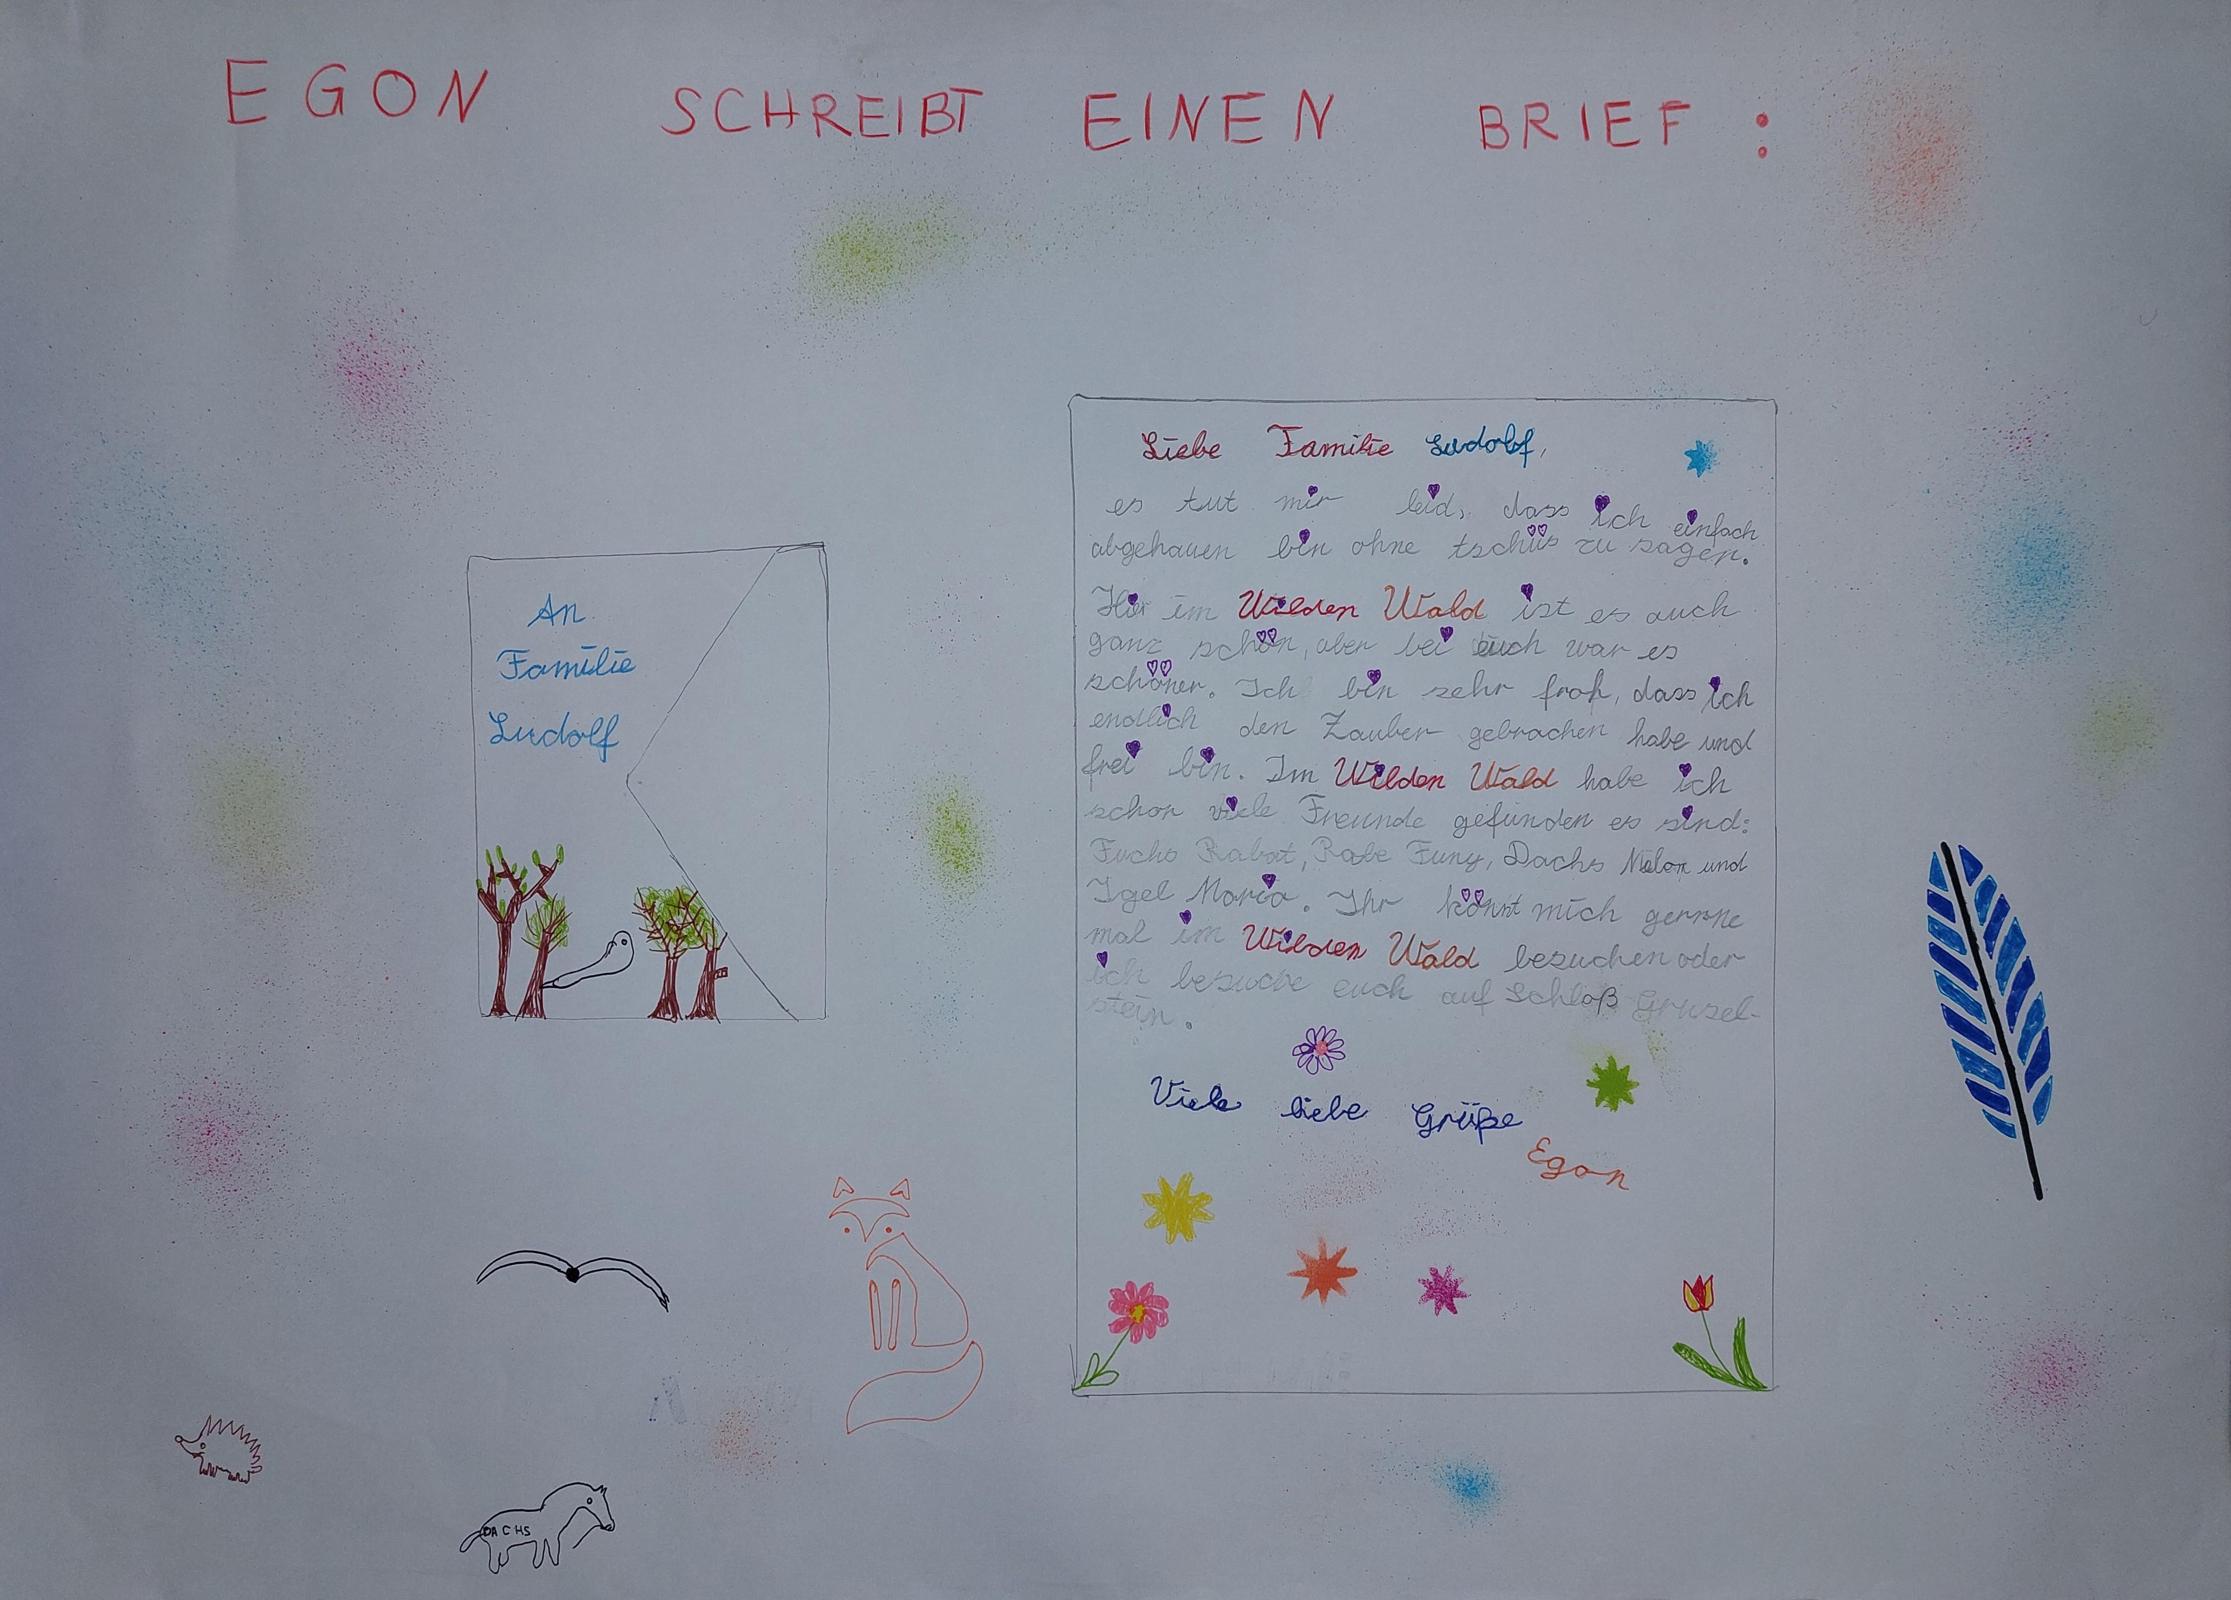 EGON SCHREIBT EINEN BRIEF:
An
Familie
Ludolf
Liebe Familie Ludolf,
es tut mir leid, dass ich einfach
abgehauen bin ohne tschüs zu sagen.
Hier im Wilden Wald ist es auch
ganz schön, aber bei euch war es
schöner. Ich bin sehr froh, dass ich
endlich den Zauber gebrochen habe und
frei bin. Im Wilden Wald habe ich
schon viele Freunde gefunden es sind:
Fuchs Rabat, Rabe Funy, Dachs und
Igel Maria. Ihr könnt mich gerne
mal im Wilden Wald besuchen oder
ich besuche euch auf Schloß Grusel-
stein.
Viele liebe Grüße
Egon
DACHS